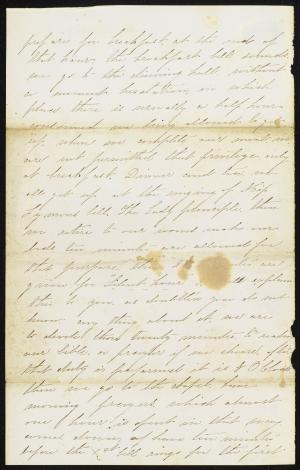 prepare for breakfast, at the end of
that hour, the breakfast bell sounds
we go to the dining hall without
a moment hesitation, in which
place there is usually a half hour
consumed we being allowed to get
up when we complete our meal we
are not permitted that privilege only
at breakfast. Dinner and tea we
all get up at the ringing of Miss
Lymans bell. The Lady principle, then
we retire to our rooms make our
beds ten minutes are allowed for
that purpose, then
given for Silent hour explain
this to you, as doubtless you do not
know any thing about it. we are
to devote those twenty minutes to reading
our bible, or prayer if we choose, after
that duty is performed it is 8 O'clock
then we go to the chapel have
morning prayers, which almost
one hour, is spent in that
before the 1st bell rings for the first